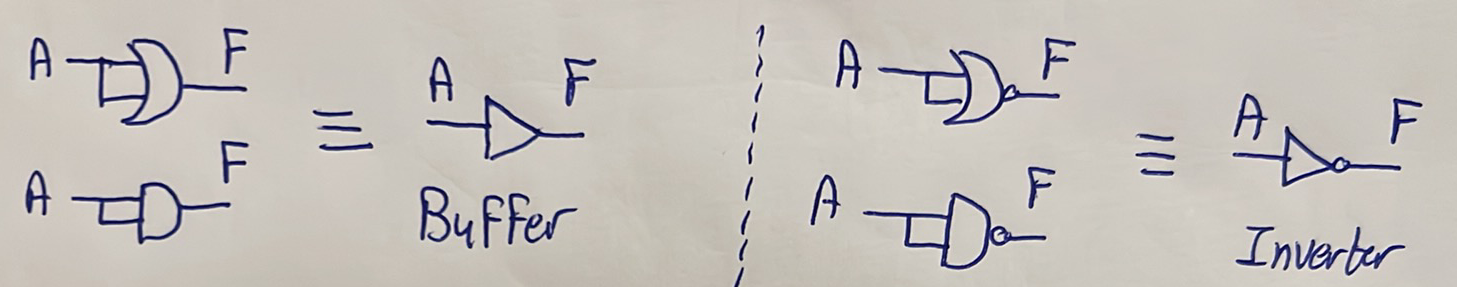 A F
A F
≡
A F
Buffer
A F
A F
≡
A F
Inverter